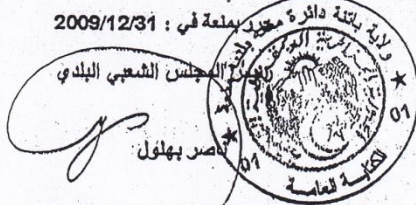 حرر بمنعة في : 2009/12/31
رئيس المجلس الشعبي البلدي
ناصر بهلول
ولاية باتنة دائرة منعة
01
01
الكتابة العامة